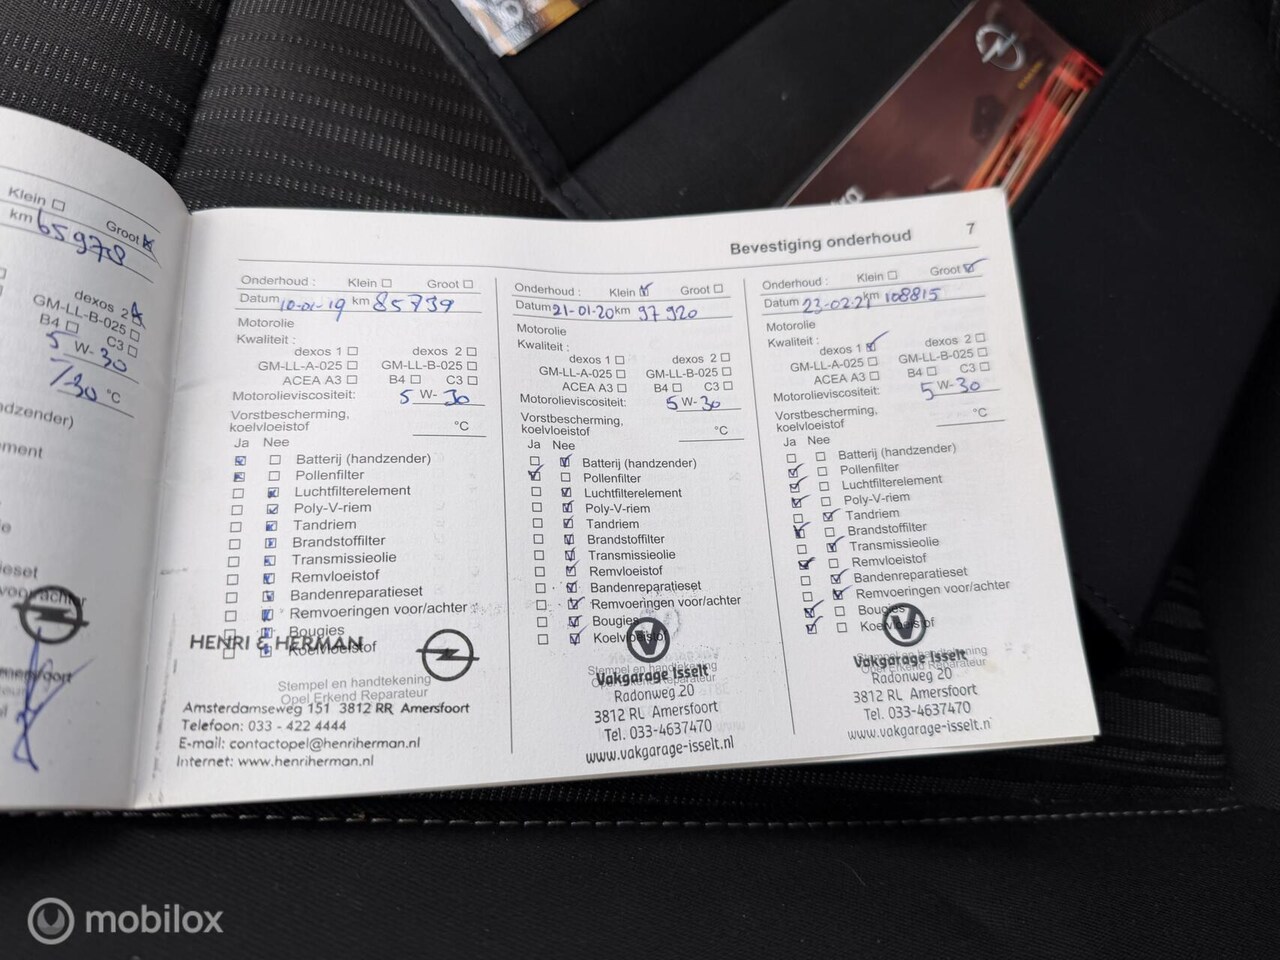 Klein
Groot
km 65978
dexos 2
GM-LL-B-025
B4 C3
5 W-30
°C
Bevestiging onderhoud 7
Onderhoud : Klein Groot
Datum 10-01-19 km 85739
Motorolie
Kwaliteit :
dexos 1 dexos 2
GM-LL-A-025 GM-LL-B-025
ACEA A3 B4 C3
Motorolieviscositeit: 5 W- 30
Vorstbescherming,
koelvloeistof °C
Ja Nee
Batterij (handzender)
Pollenfilter
Luchtfilterelement
Poly-V-riem
Tandriem
Brandstoffilter
Transmissieolie
Remvloeistof
Bandenreparatieset
Remvoeringen voor/achter
Bougies
Koelvloeistof
HENRI & HERMAN
Stempel en handtekening
Opel Erkend Reparateur
Amsterdamseweg 151 3812 RR Amersfoort
Telefoon: 033 - 422 4444
E-mail: contactopel@henriherman.nl
Internet: www.henriherman.nl
Onderhoud : Klein Groot
Datum 21-01-20 km 97920
Motorolie
Kwaliteit :
dexos 1 dexos 2
GM-LL-A-025 GM-LL-B-025
ACEA A3 B4 C3
Motorolieviscositeit: 5 W- 30
Vorstbescherming,
koelvloeistof °C
Ja Nee
Batterij (handzender)
Pollenfilter
Luchtfilterelement
Poly-V-riem
Tandriem
Brandstoffilter
Transmissieolie
Remvloeistof
Bandenreparatieset
Remvoeringen voor/achter
Bougies
Koelvloeistof
Stempel en handtekening
Opel Erkend Reparateur
Vakgarage Isselt
Radonweg 20
3812 RL Amersfoort
Tel. 033-4637470
www.vakgarage-isselt.nl
Onderhoud : Klein Groot
Datum 23-02-21 km 108815
Motorolie
Kwaliteit :
dexos 1 dexos 2
GM-LL-A-025 GM-LL-B-025
ACEA A3 B4 C3
Motorolieviscositeit: 5 W- 30
Vorstbescherming,
koelvloeistof °C
Ja Nee
Batterij (handzender)
Pollenfilter
Luchtfilterelement
Poly-V-riem
Tandriem
Brandstoffilter
Transmissieolie
Remvloeistof
Bandenreparatieset
Remvoeringen voor/achter
Bougies
Koelvloeistof
Stempel en handtekening
Opel Erkend Reparateur
Vakgarage Isselt
Radonweg 20
3812 RL Amersfoort
Tel. 033-4637470
www.vakgarage-isselt.n
mobilox